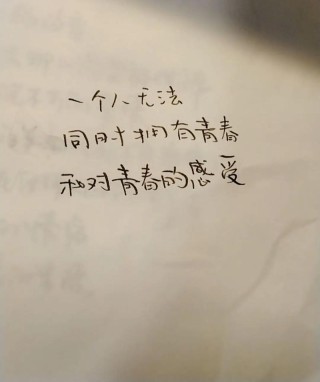 一个人无法
同时拥有青春
和对青春的感受